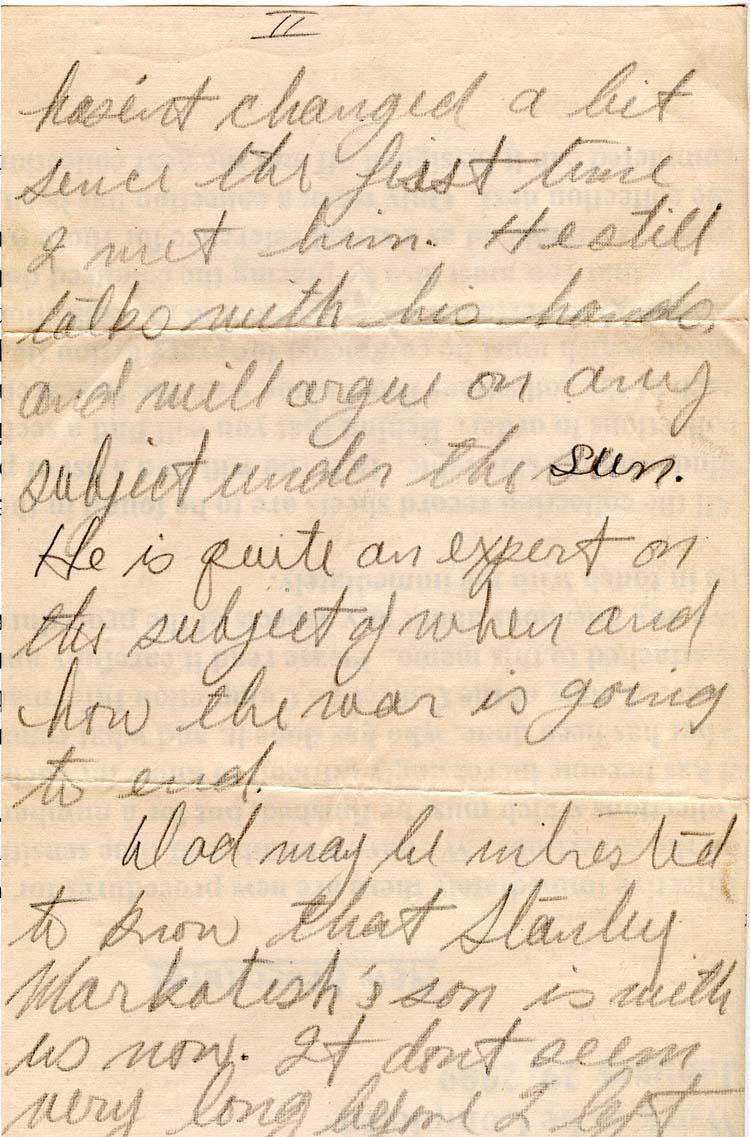 II
hasént changed a bit
since the first time
I met him. He still
talks with his hands,
and will argue on any
subject under the sun.
He is quite an expert on
the subject of when and
how the war is going
to end.
Dad may be intrested
to know that Stanley
Markotish's son is with
us now. It dont seem
very long before I left